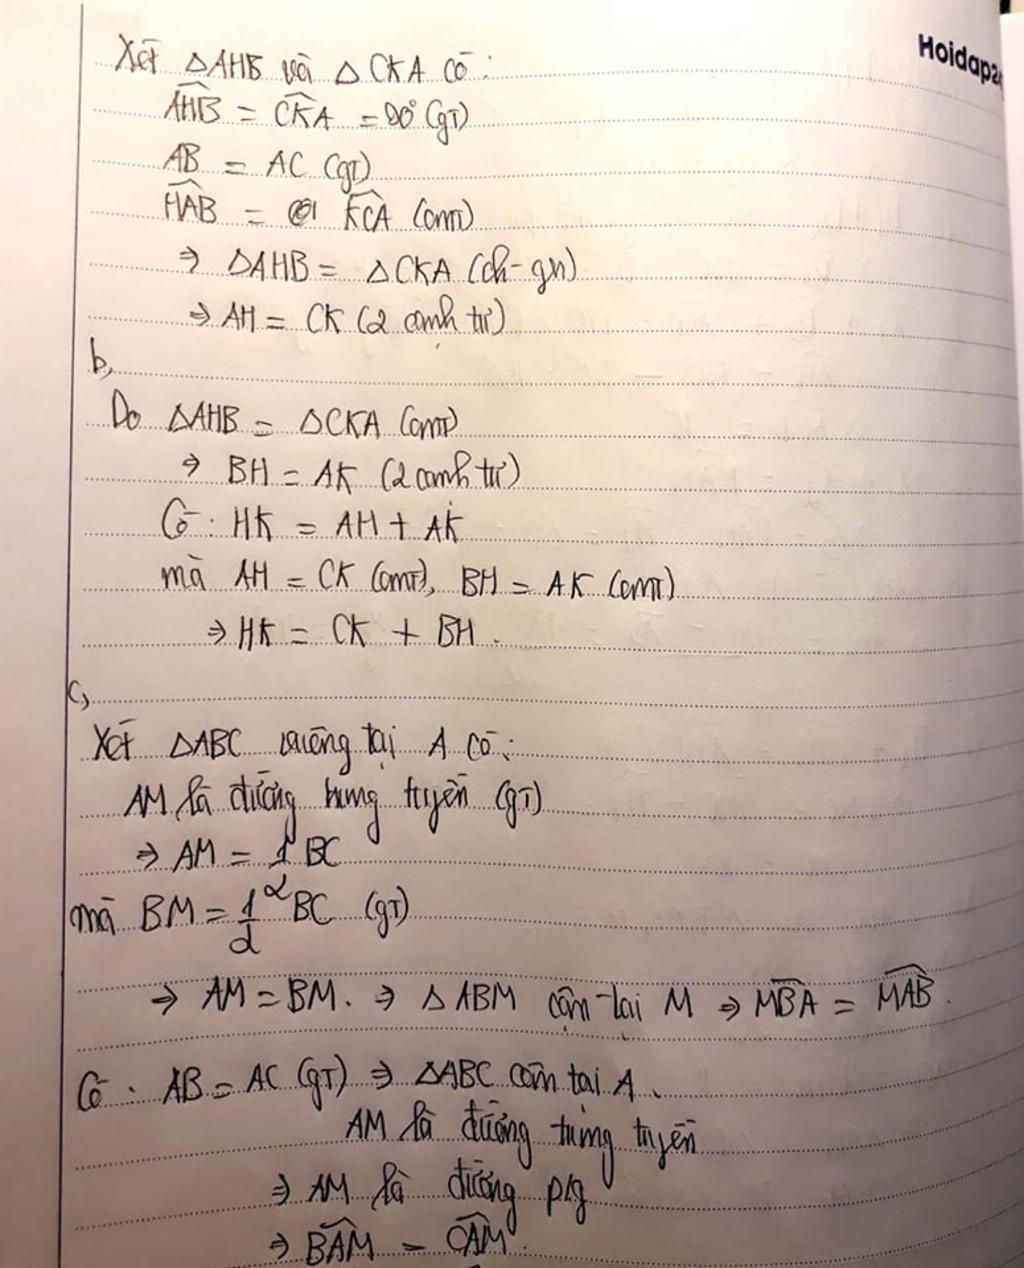 Xét △AHB và △CKA có:
Hoidap2
∠AHB = ∠CKA = 90° (gT)
AB = AC (gT)
∠HAB = ∠KCA (cmT)
⇒ △AHB = △CKA (ch-gn)
⇒ AH = CK (2 cạnh tư)
b,
Do △AHB = △CKA (cmT)
⇒ BH = AK (2 cạnh tư)
Có: HK = AH + AK
mà AH = CK (cmT), BH = AK (cmT)
⇒ HK = CK + BH.
c,
Xét △ABC vuông tại A có:
AM là đường trung tuyến (gT)
⇒ AM = 1/2 BC
mà BM = 1/2 BC (gT)
⇒ AM = BM. ⇒ △ABM cân tại M ⇒ ∠MBA = ∠MAB.
Có: AB = AC (gT) ⇒ △ABC cân tại A.
AM là đường trung tuyến
⇒ AM là đường p/g
⇒ ∠BAM = ∠CAM.